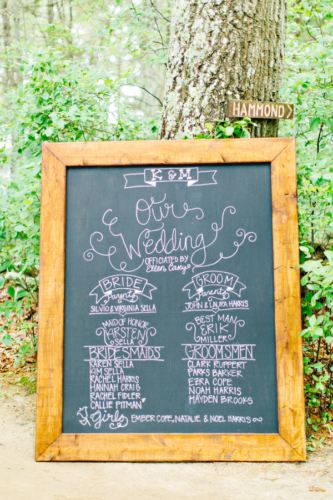 HAMMOND
K & M
Our
Wedding
OFFICIATED BY
Ellen Casey
BRIDE
Parents
SILVIO & VIRGINIA SELLA
GROOM
Parents
JOHN & LAURA HARRIS
MAID OF HONOR
KIRSTEN
SELLA
BEST MAN
ERIK
MILLER
BRIDESMAIDS
KAREN SELLA
KIM SELLA
RACHEL HARRIS
HANNAH CRAIG
RACHEL FIDLER
CALLIE PITMAN
GROOMSMEN
CLARK RUPPERT
PARKS BARKER
EZRA COPE
NOAH HARRIS
HAYDEN BROOKS
Girls EMBER COPE, NATALIE & NOEL HARRIS